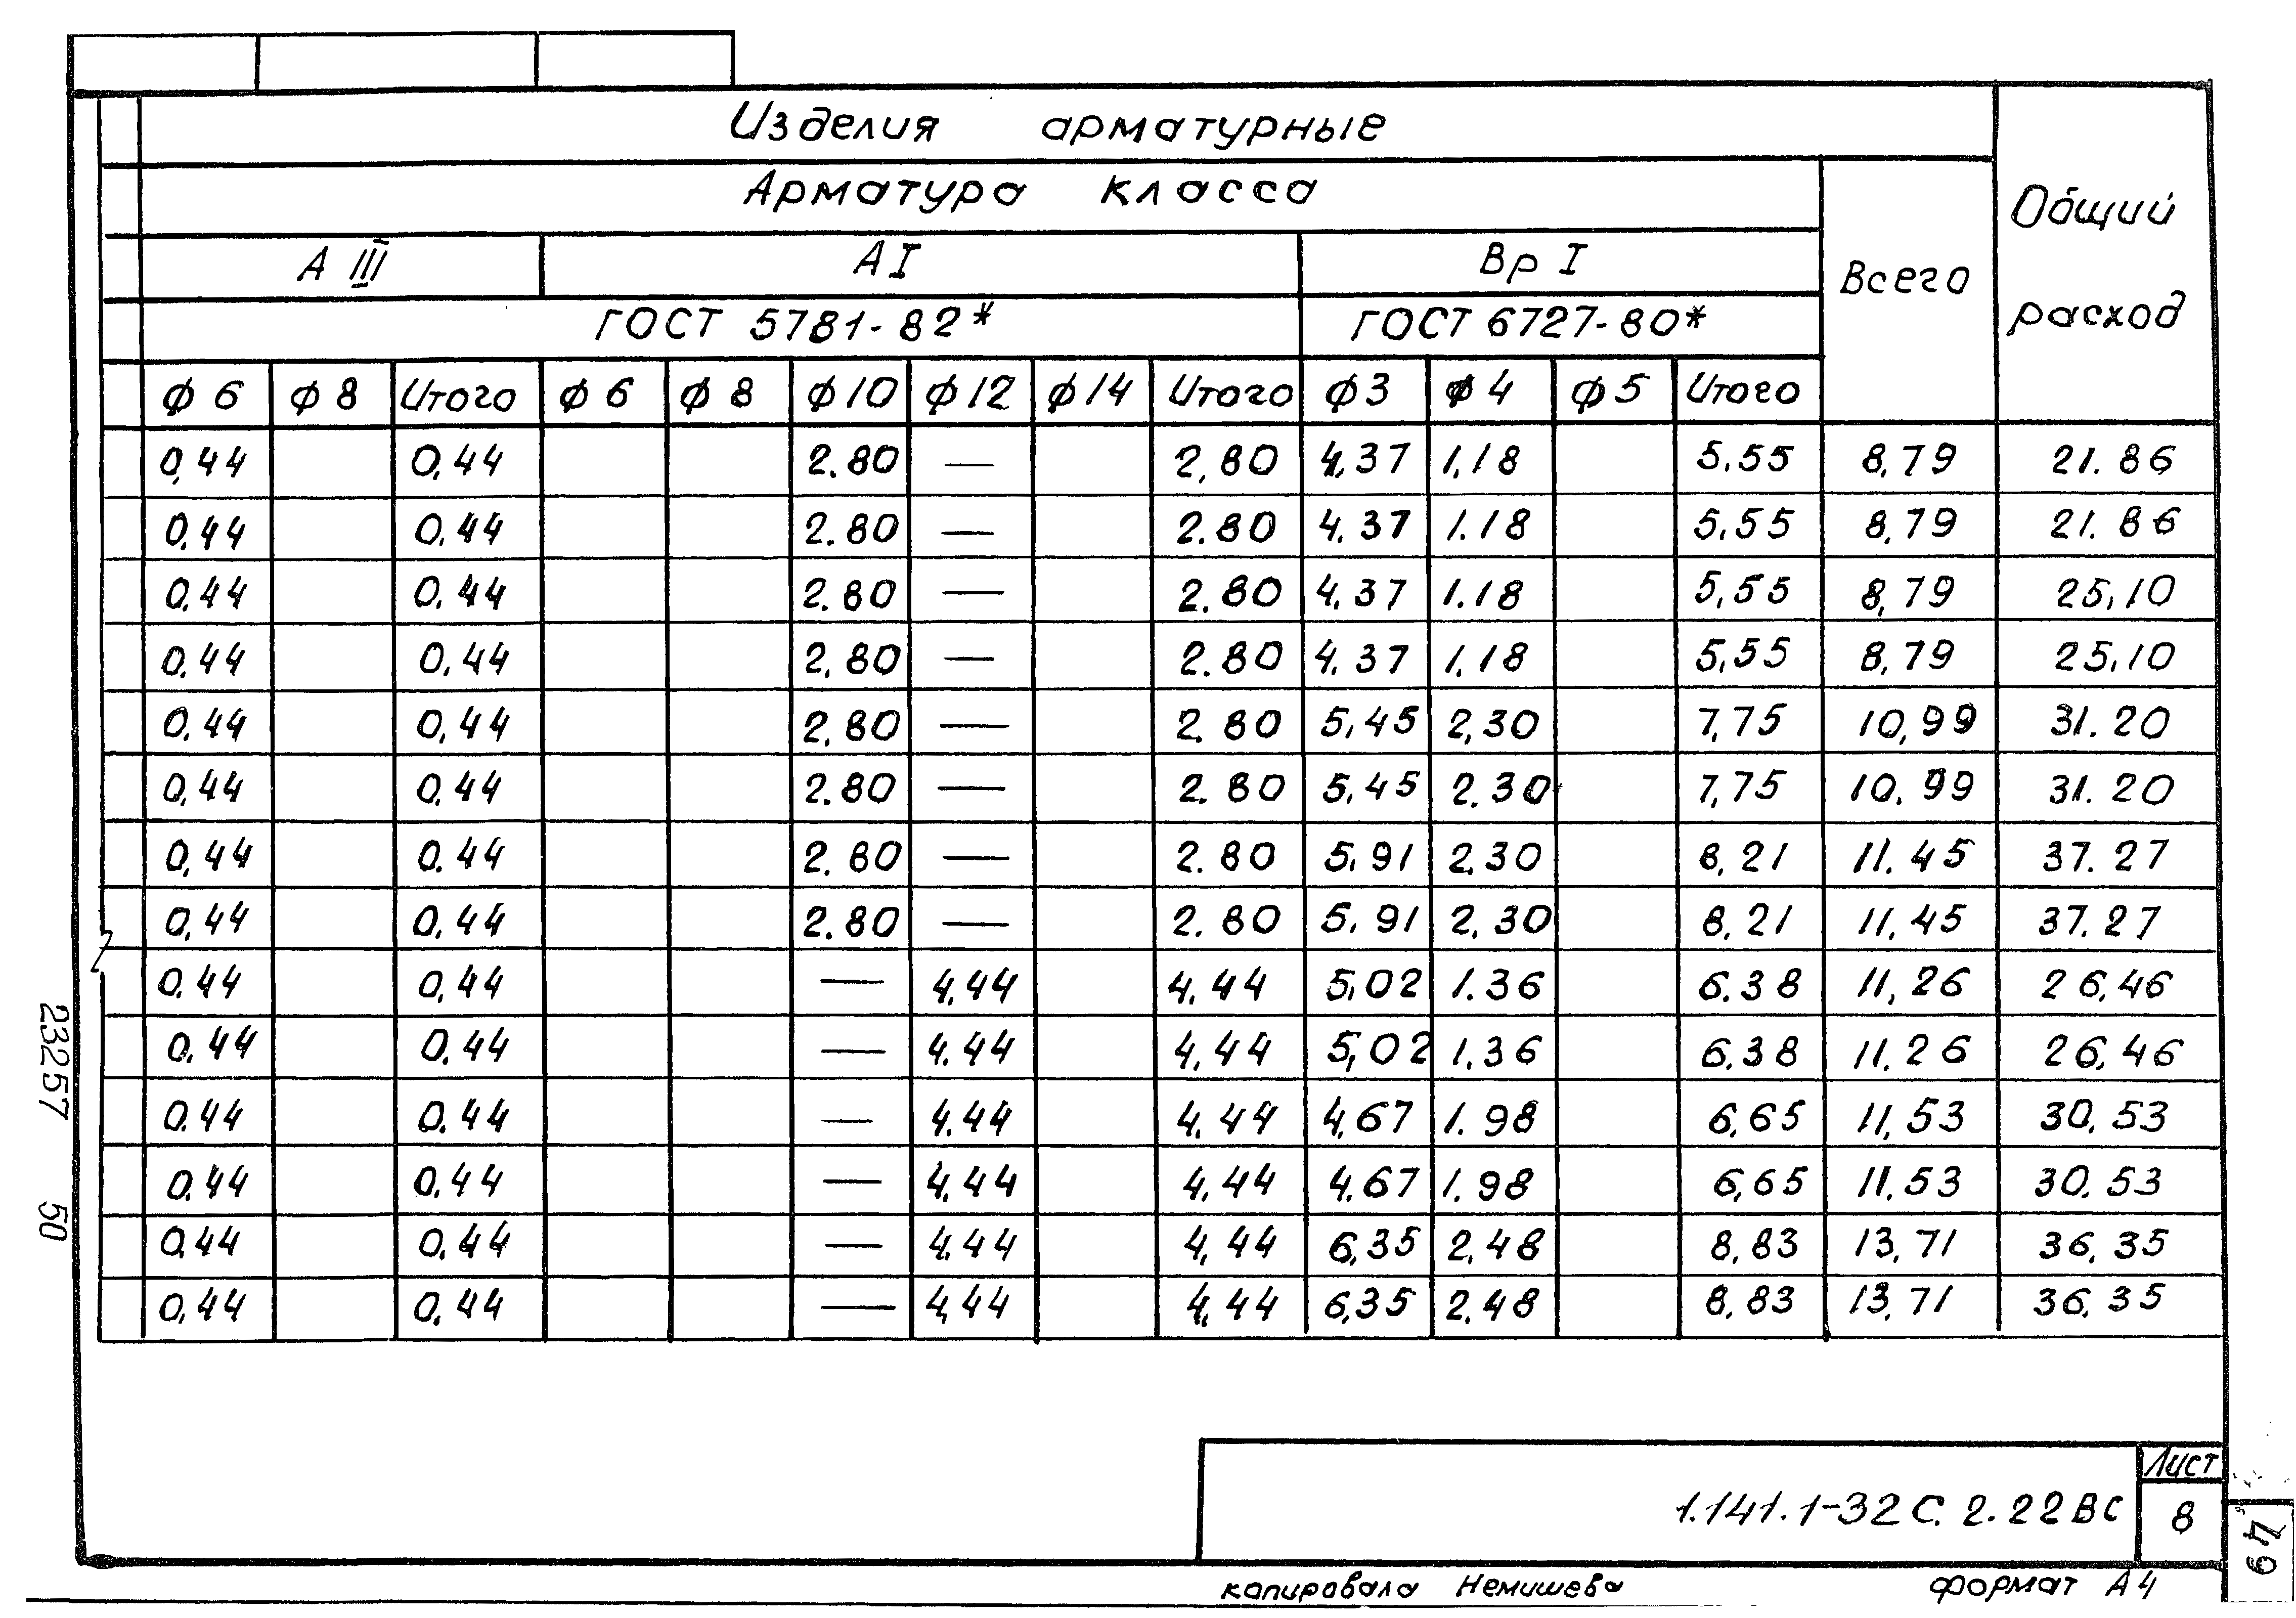 Изделия арматурные
Общий расход
Арматура класса
Всего
А III А I Вр I
ГОСТ 5781-82* ГОСТ 6727-80*
ф 6 ф 8 Итого ф 6 ф 8 ф 10 ф 12 ф 14 Итого ф 3 ф 4 ф 5 Итого
0,44 0,44 2.80 — 2,80 4,37 1,18 5.55 8,79 21.86
0.44 0.44 2.80 — 2.80 4.37 1.18 5,55 8,79 21.86
0.44 0.44 2.80 — 2.80 4,37 1.18 5,55 8,79 25,10
0,44 0,44 2,80 — 2.80 4,37 1,18 5,55 8,79 25,10
0.44 0,44 2,80 — 2.80 5,45 2,30 7,75 10,99 31.20
0,44 0.44 2.80 — 2.80 5,45 2.30 7,75 10.99 31.20
0,44 0.44 2.80 — 2.80 5,91 2,30 8,21 11.45 37.27
0,44 0.44 2.80 — 2.80 5.91 2,30 8,21 11,45 37.27
0.44 0,44 — 4.44 4,44 5,02 1.36 6.38 11,26 26,46
0.44 0.44 — 4.44 4,44 5,02 1.36 6.38 11.26 26,46
0.44 0.44 — 4.44 4,44 4,67 1.98 6,65 11,53 30,53
0.44 0.44 — 4,44 4,44 4.67 1.98 6,65 11.53 30.53
0,44 0.44 — 4,44 4,44 6,35 2,48 8,83 13,71 36,35
0,44 0.44 — 4,44 4,44 6,35 2.48 8,83 13,71 36,35
23257 50
Лист
1.141.1-32С.2.22ВС 8
49
копировала Немишева формат А4